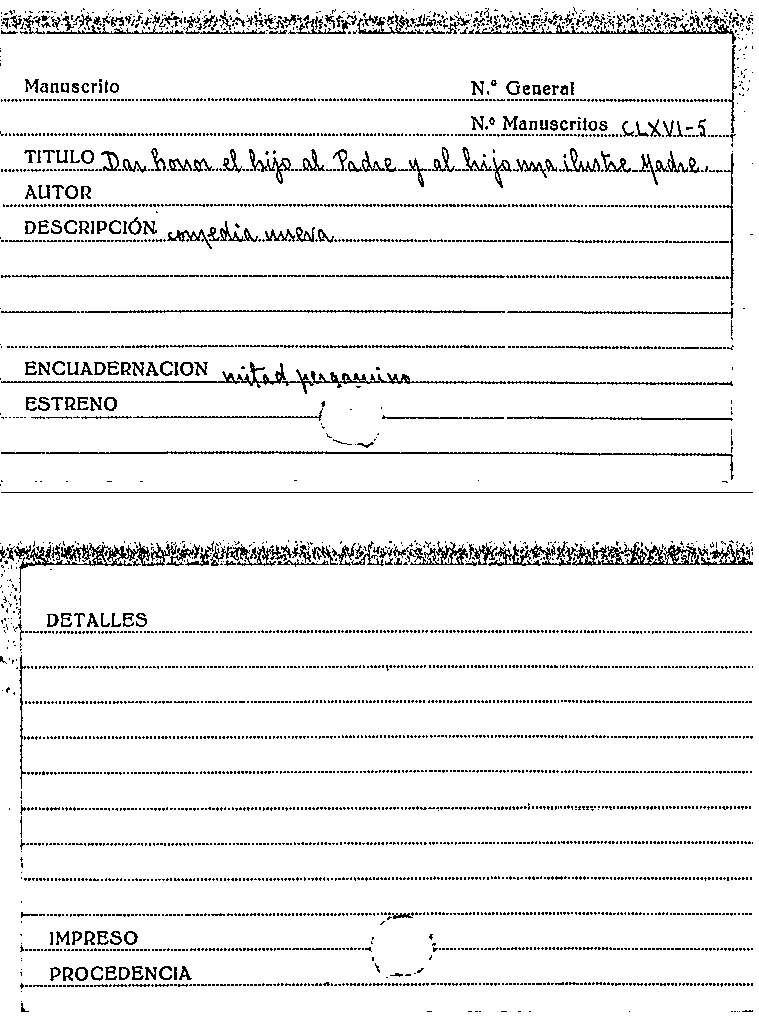 Manuscrito N.º General
N.º Manuscritos CLXVI-5
TITULO Dar honor el hijo al Padre y al hijo una ilustre Madre.
AUTOR
DESCRIPCIÓN comedia nueva
ENCUADERNACION mitad pergamino
ESTRENO
DETALLES
IMPRESO
PROCEDENCIA